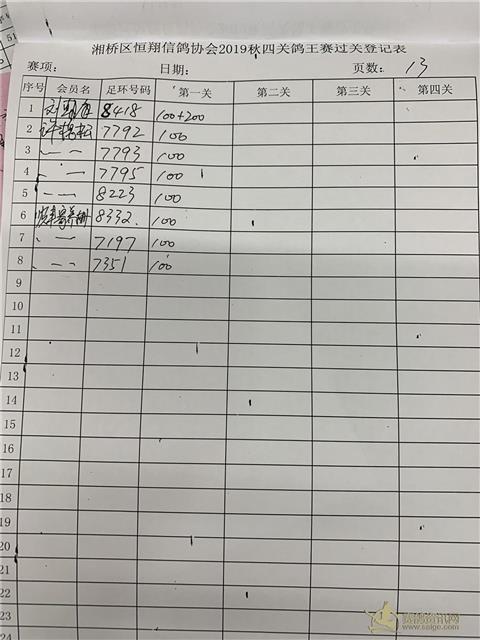 湘桥区恒翔信鸽协会2019秋四关鸽王赛过关登记表
赛项: 日期: 页数: 13
序号 会员名 足环号码 第一关 第二关 第三关 第四关
1 8418 100+200
2 7792 100
3 〃 一 7793 100
4 〃 一 7795 100
5 〃 一 8223 100
6 8332 100
7 〃 一 7197 100
8 〃 一 7351 100
9
10
11
12
13
14
15
16
17
18
19
20
21
22
23
24
www.saige.com